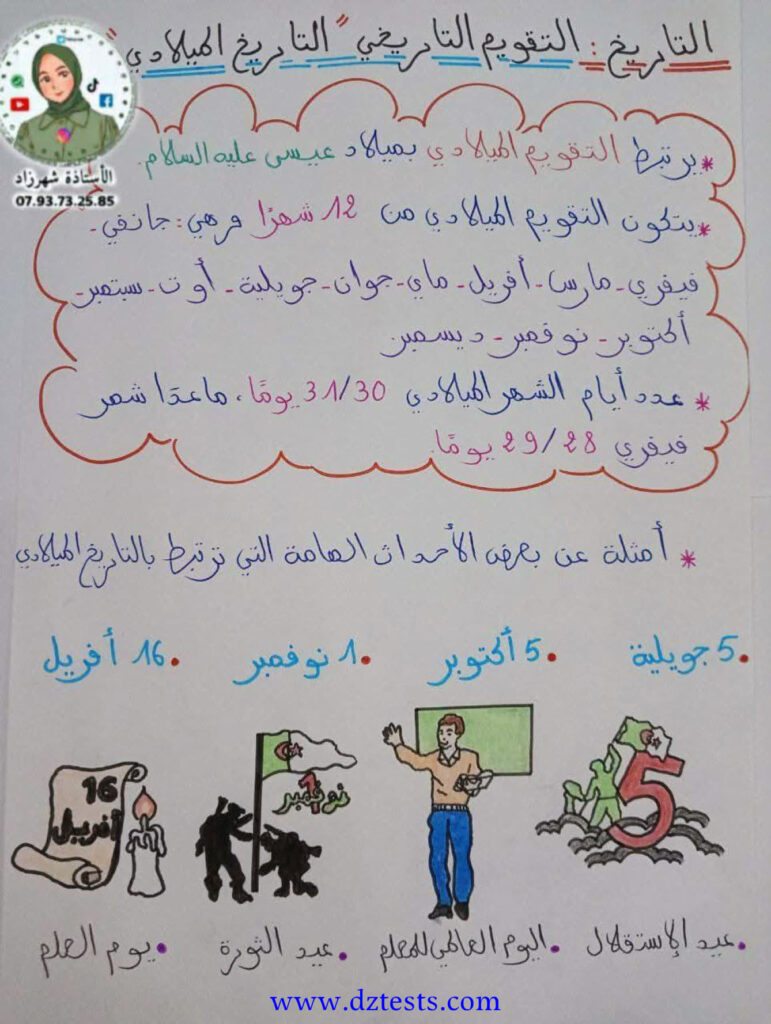 التاريخ : التقويم التاريخي "التاريخ الميلادي"
الأستاذة شهرزاد
07.93.73.25.85
* يرتبط التقويم الميلادي بميلاد عيسى عليه السلام.
* يتكون التقويم الميلادي من 12 شهرًا وهي: جانفي -
فيفري - مارس - أفريل - ماي - جوان - جويلية - أوت - سبتمبر -
أكتوبر - نوفمبر - ديسمبر.
* عدد أيام الشهر الميلادي 31/30 يومًا، ماعدَا شهر
فيفري 29/28 يومًا.
* أمثلة عن بعض الأحداث الهامة التي ترتبط بالتاريخ الميلادي
.5 جويلية .5 أكتوبر .1 نوفمبر .16 أفريل
5
1
نوفمبر
16
أفريل
. عيد الإستقلال . اليوم العالمي للمعلم . عيد الثورة . يوم العلم
www.dztests.com